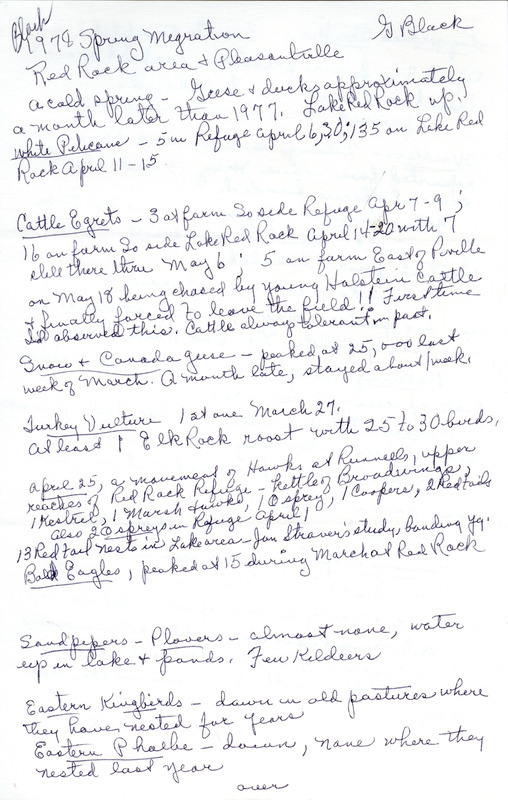 Black
1978 Spring Megration G Black
Red Rock area & Pleasantville
a cold spring - Geese & ducks approximately
a month later than 1977. Lake Red Rock up.
White Pelicans - 5 on Refuge April 6, 30; 135 on Lake Red
Rock April 11-15
Cattle Egrets - 3 at farm So side Refuge Apr 7-9;
16 on farm So side Lake Red Rock April 14-20 with 7
still there thru May 6; 5 on farm East of Pville
on May 18 being chased by young Holstein Cattle
& finally forced to leave the field!! First time
I'd observed this. Cattle always tolerant in past.
Snow & Canada geese - peaked at 25,000 last
week of March. A month late, stayed about 1 week.
Turkey Vulture 1st one March 27.
At least 1 Elk Rock roost with 25 to 30 birds.
April 25, a movement of Hawks at Runnells, upper
reaches of Red Rock Refuge - kettle of Broadwings,
1 Kestrel, 1 Marsh Hawk, 1 Osprey, 1 Coopers, 2 Redtails
Also 2 Ospreys in Refuge April 1
13 Red tail nests in Lake area - Jon Stravers study, banding yg.
Bald Eagles, peaked at 15 during March at Red Rock
Sandpipers - Plovers - almost none, water
up in lake & ponds. Few Kildeers
Eastern Kingbirds - down in old pastures where
they have nested for years
Eastern Phoebe - down, none where they
nested last year
over